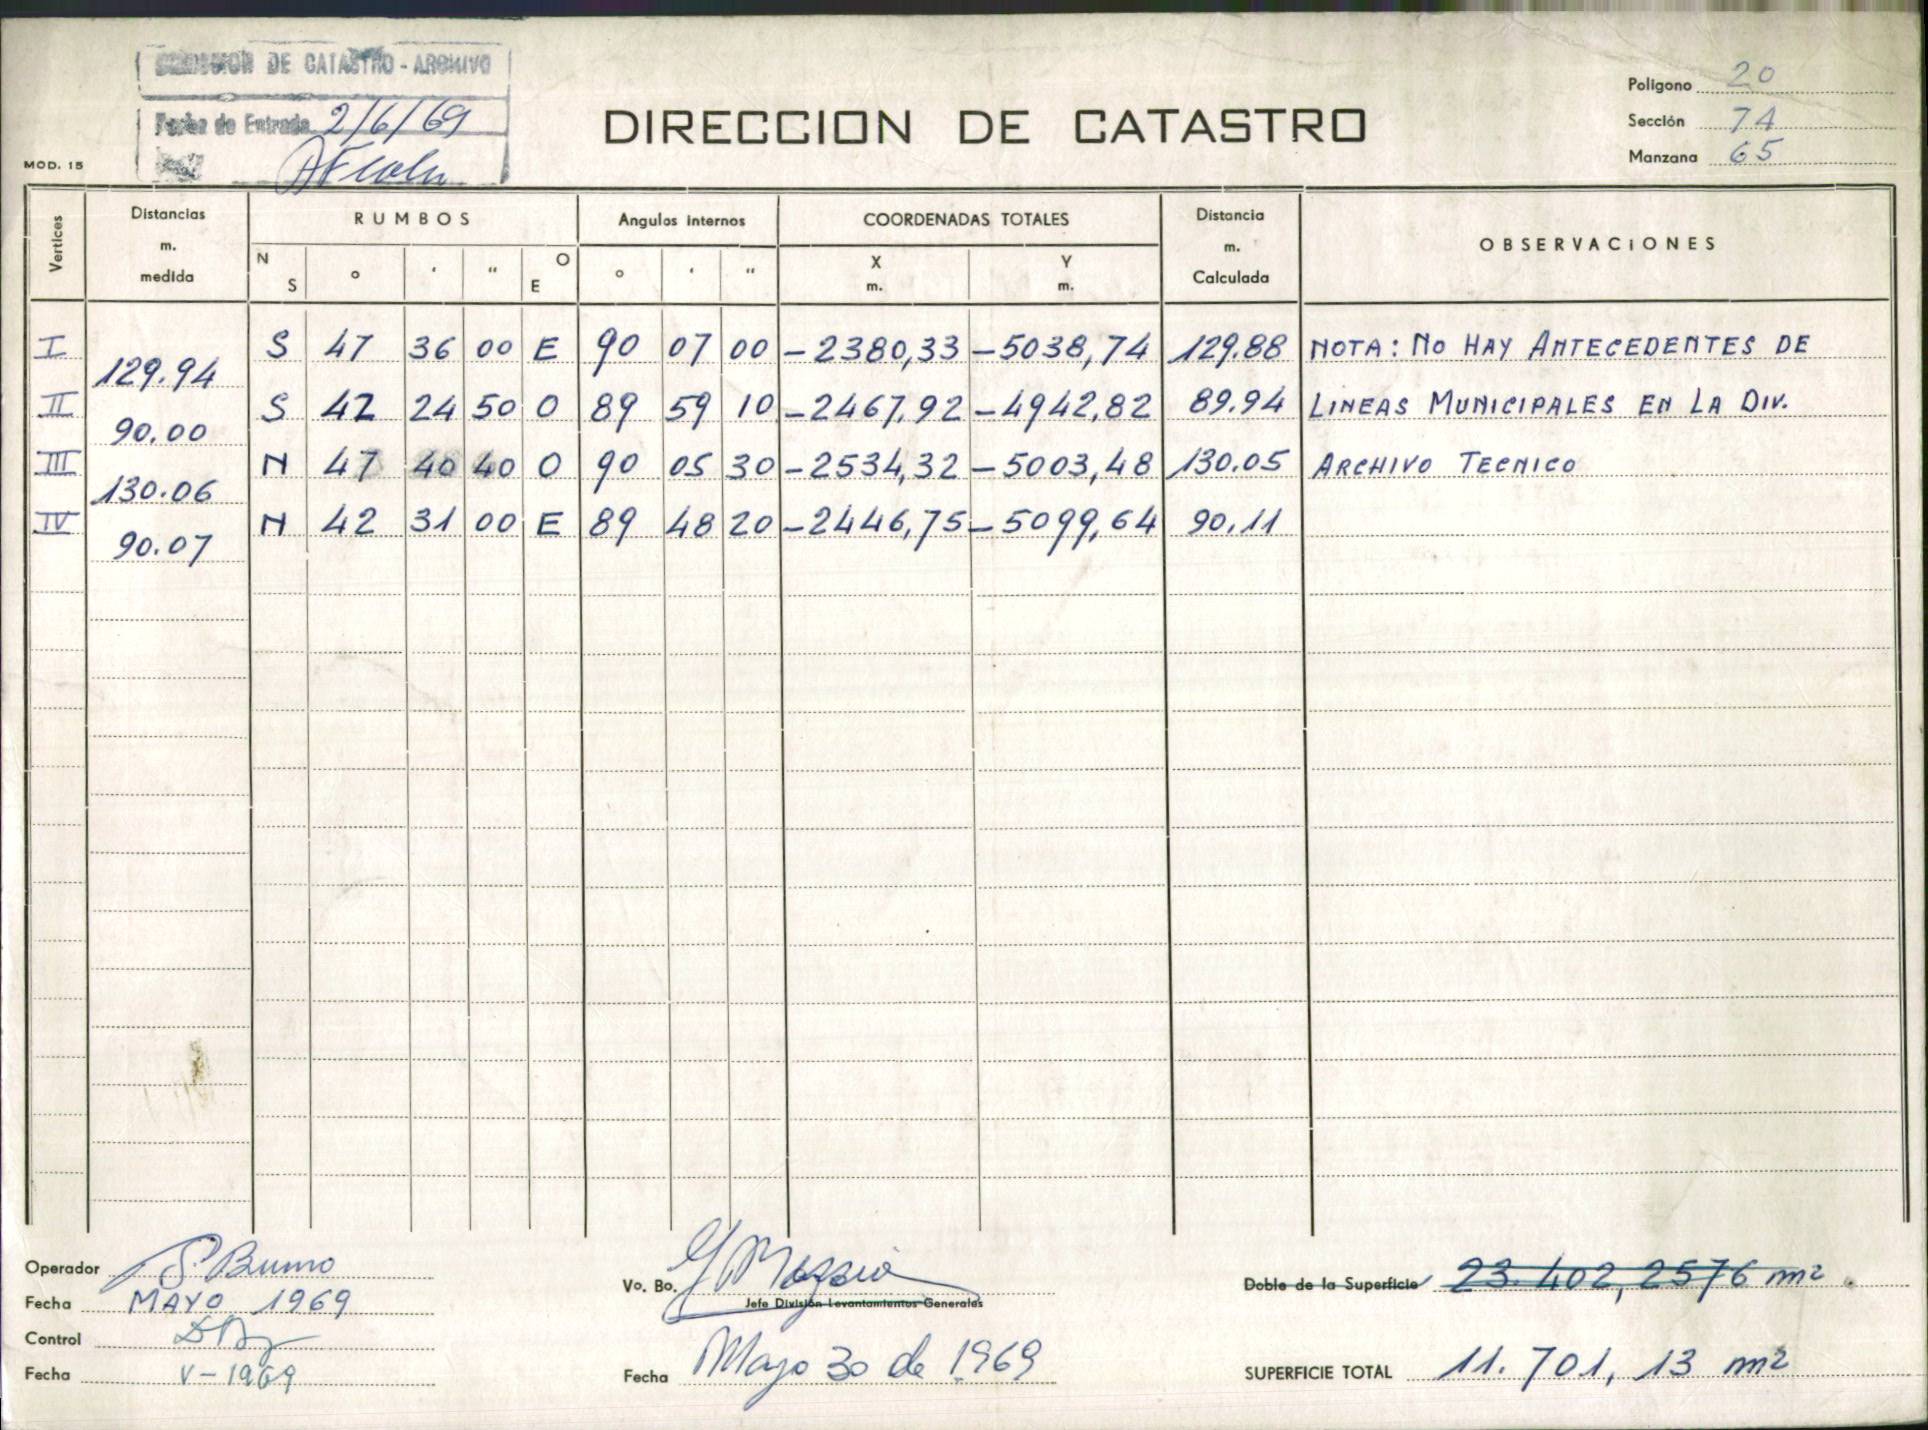 DIRECCION DE CATASTRO - ARCHIVO
Fecha de Entrada 2/6/69
MOD. 15
DIRECCION DE CATASTRO
Polígono 20
Sección 74
Manzana 65
Vertices
Distancias m. medida
RUMBOS
Angulos internos
COORDENADAS TOTALES
Distancia m. Calculada
OBSERVACIONES
N S ° ' " O E ° ' " X m. Y m.
I S 47 36 00 E 90 07 00 -2380,33 -5038,74 129.88 NOTA: NO HAY ANTECEDENTES DE
129.94
II S 42 24 50 O 89 59 10 -2467,92 -4942,82 89.94 LINEAS MUNICIPALES EN LA DIV.
90.00
III N 47 40 40 O 90 05 30 -2534,32 -5003,48 130.05 ARCHIVO TECNICO
130.06
IV N 42 31 00 E 89 48 20 -2446,75 -5099,64 90.11
90.07
Operador S. Bruno
Fecha MAYO 1969
Control
Fecha V-1969
Vo. Bo.
Jefe División Levantamientos Generales
Fecha Mayo 30 de 1969
Doble de la Superficie 23.402,2576 m²
SUPERFICIE TOTAL 11.701,13 m²